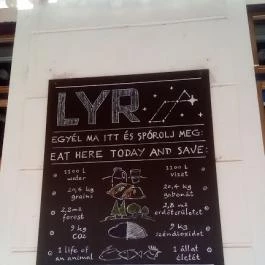 LYRA
EGYÉL MA ITT ÉS SPÓROLJ MEG:
EAT HERE TODAY AND SAVE:
1100 l
water
1100 l
vizet
20,4 kg
grains
20,4 kg
gabonát
2,8 m²
forest
2,8 m²
erdőterületet
9 kg
CO2
9 kg
széndioxidot
1 life of
an animal
1 állat
életét